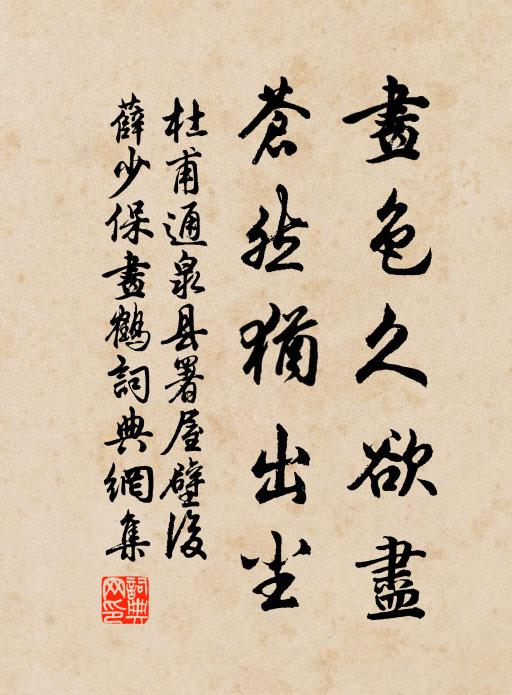 畫色久欲盡
蒼然猶出尘
杜甫通泉县署屋壁後
薛少保畫鶴詞典網集
詞典网印